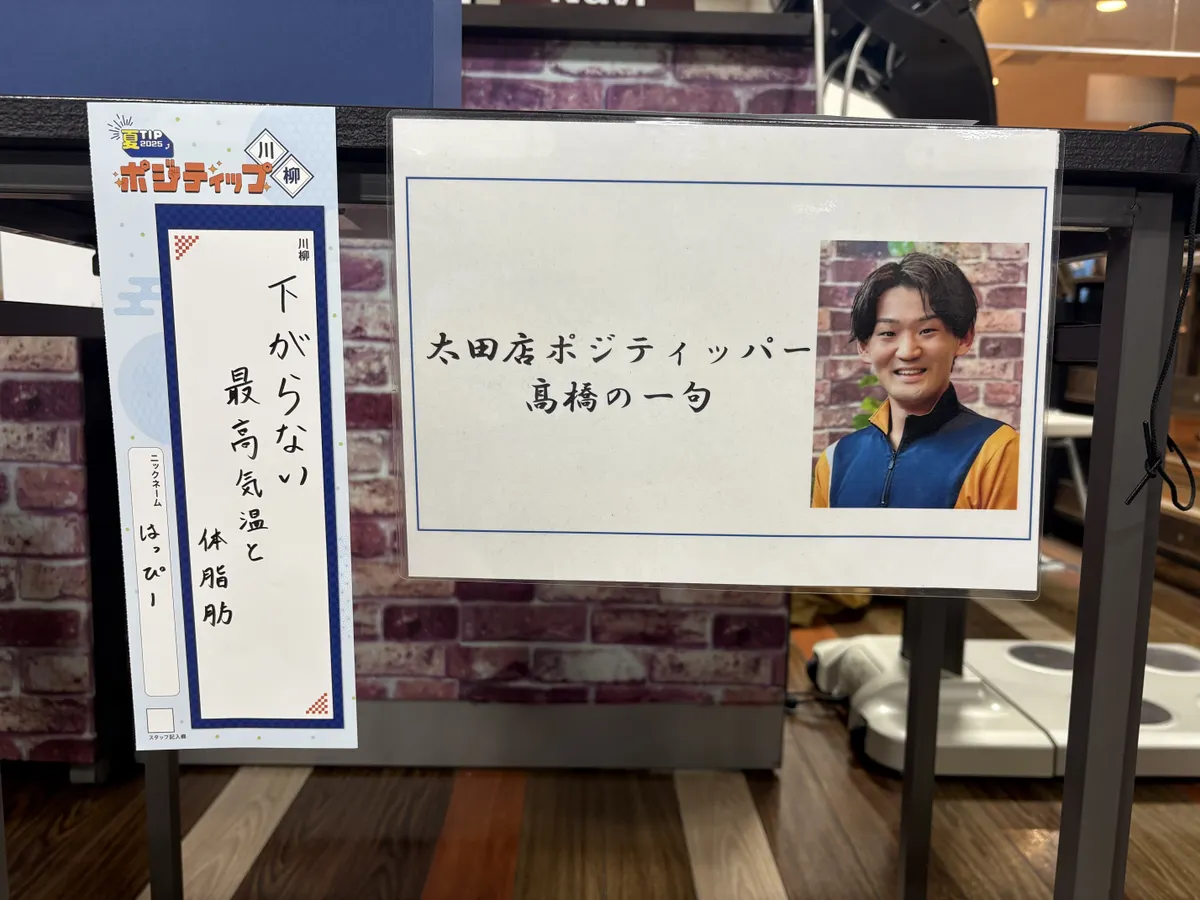 Navi
夏TIP
2025
ポジティップ
川柳
川柳
下がらない
最高気温と
体脂肪
ニックネーム
はっぴー
スタッフ記入欄
太田店ポジティッパー
髙橋の一句